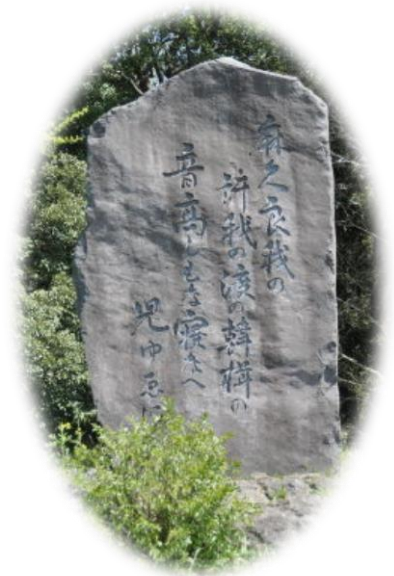 麻久良我の
許我の渡の韓楫の
音高しもな寝なへ
児ゆゑに